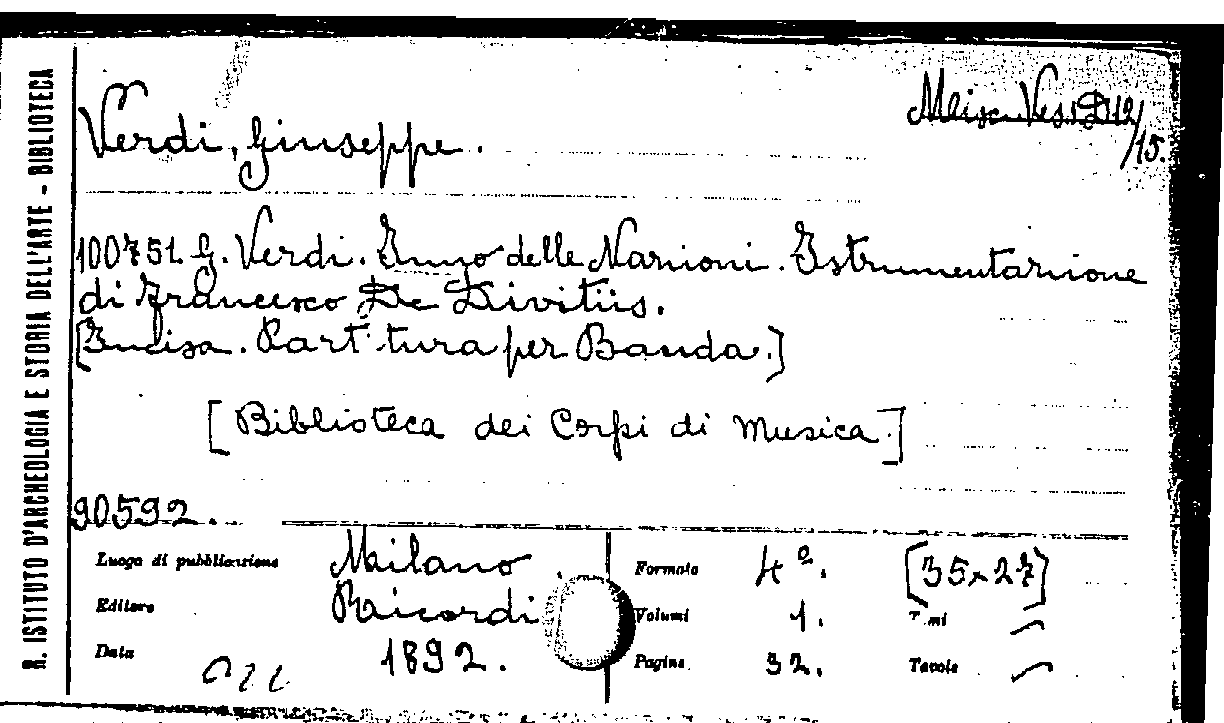 R. ISTITUTO D'ARCHEOLOGIA E STORIA DELL'ARTE - BIBLIOTECA
Verdi, Giuseppe.
15.
100751. G. Verdi. Inno delle Nazioni. Istrumentazione
di Francesco De Divitiis.
[Incisa. Partitura per Banda.]
[Biblioteca dei Corpi di Musica.]
90592.
Luogo di pubblicazione Milano Formato 4º. [35×27]
Editore Ricordi Volumi 1. Tomi
Data 1892. Pagine 32. Tavole